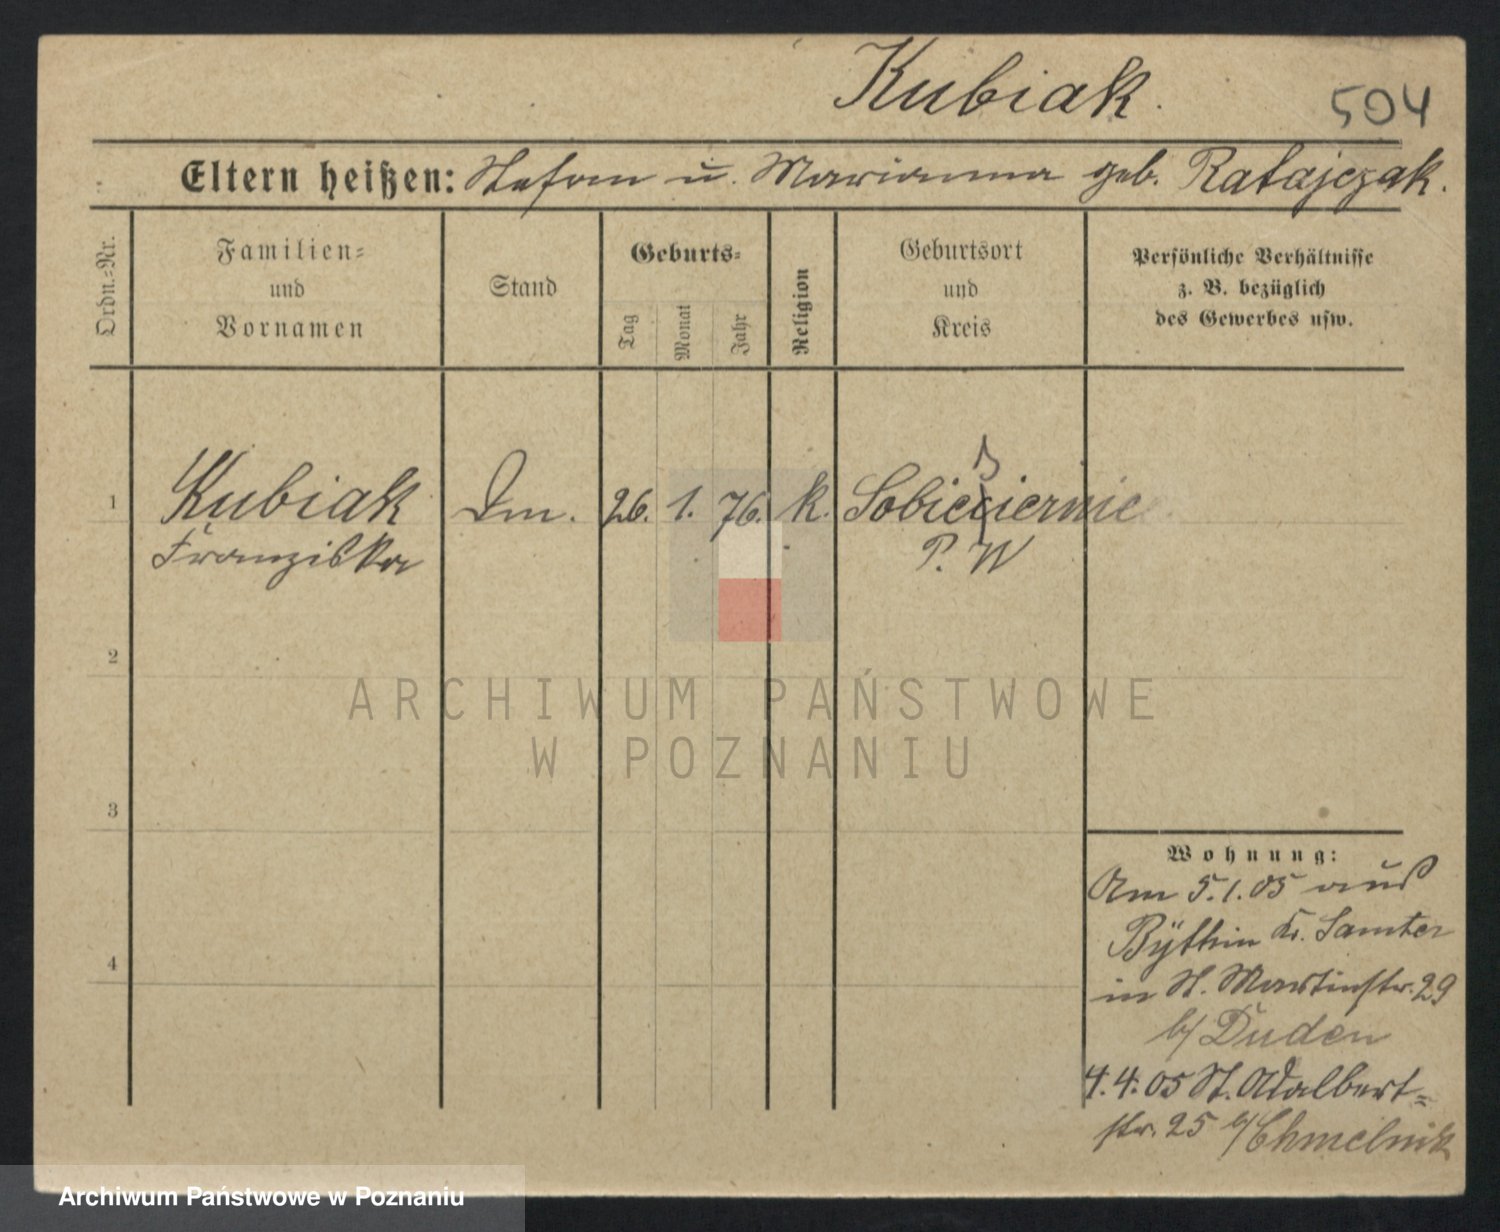 Kubiak.
504
Eltern heißen: Stefan u. Marianna geb. Ratajczak.
Ordn.=Nr.
Familien=
und
Vornamen
Stand
Geburts=
Tag
Monat
Jahr
Religion
Geburtsort
und
Kreis
Persönliche Verhältnisse
z. B. bezüglich
des Gewerbes usw.
1
Kubiak
Franziska
Dm.
26. 1. 76.
k.
P. W
2
3
4
Wohnung:
Am 5.1.05 aus
Bÿthin Kr. Samter
in St. Martinstr. 29
b/ Duden
4.4.05 St. Adalbert=
str. 25 b/ Chmelnik
ARCHIWUM PAŃSTWOWE
W POZNANIU
Archiwum Państwowe w Poznaniu